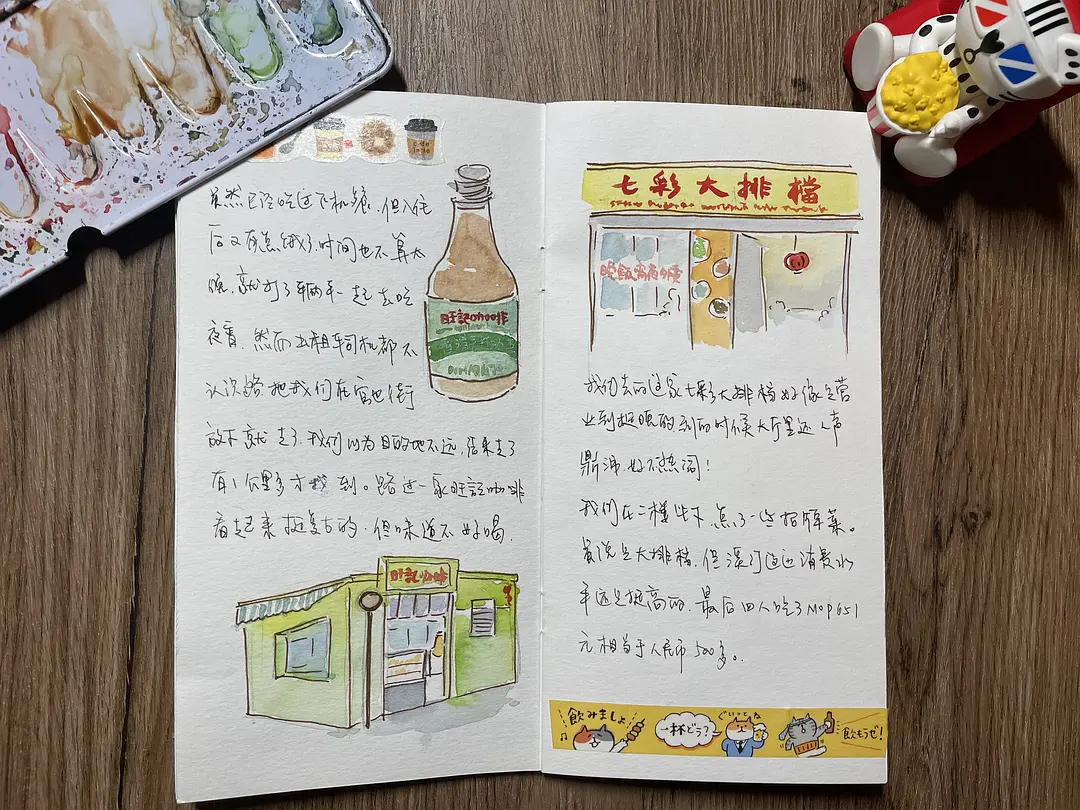 虽然已经吃过飞机餐,但入住
后又有点饿了,时间也不算太
晚,就打了车俩车一起去吃
夜宵,然而出租车司机都不
认识路,把我们在官也街
放下就走了,我们以为目的地不远,结果走了
有1公里多才找到。路过一家旺記咖啡
看起来挺复古的,但味道不好喝.
旺記咖啡
旺記咖啡
七彩大排檔
晚飯宵夜
我们去的这家七彩大排档好像是营
业到挺晚的,到的时候大厅里还人声
鼎沸,好不热闹!
我们在二楼坐下,点了一些招牌菜。
虽说是大排档,但澳门这边消费水
平还是挺高的,最后四人吃了MOP651
元相当于人民币500多。
飲みましょ
一杯どう?
ぐいっとね
飲もうぜ!